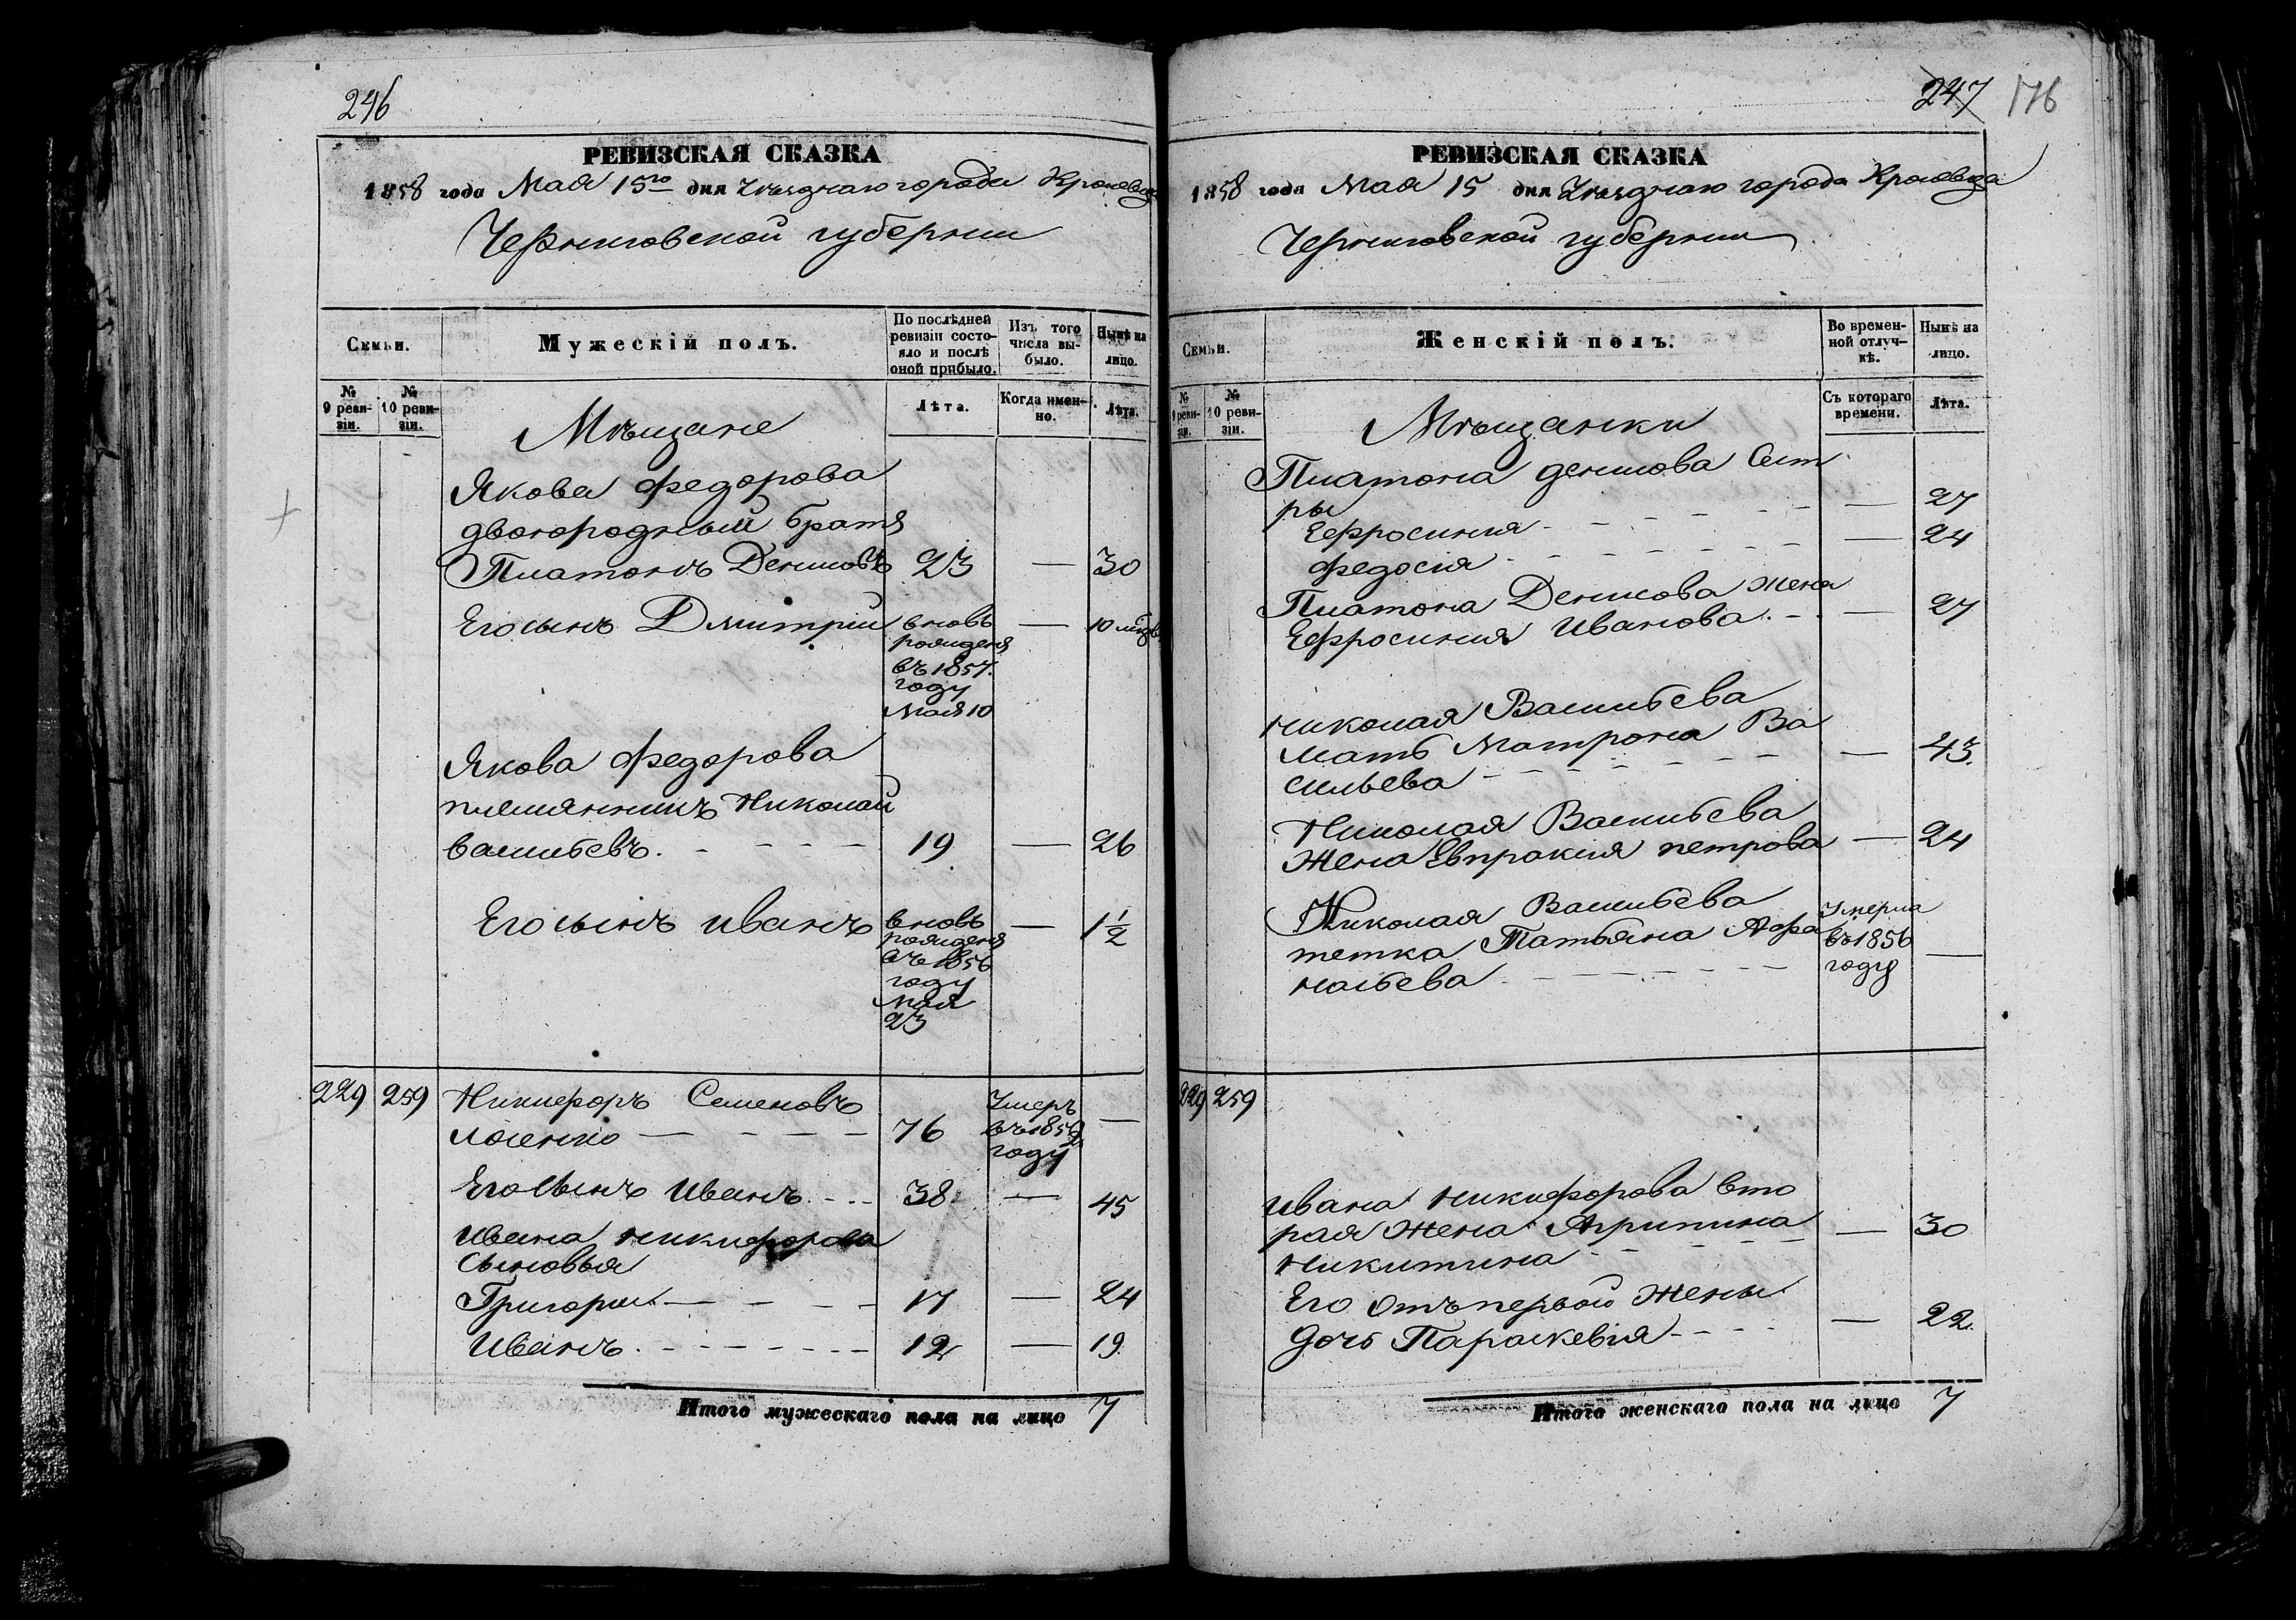 246
РЕВИЗСКАЯ СКАЗКА
1858 года Мая 15го дня Уѣзднаго города Кролевца
Черниговской губернии
Семьи.
Мужескій полъ.
По послѣдней ревизіи состояло и послѣ оной прибыло.
Изъ того числа выбыло.
Нынѣ на лицо.
№ 9 ревизіи.
№ 10 ревизіи.
Лѣта.
Когда именно.
Лѣта.
Мѣщане
Якова Федорова
двоюродный братъ
Платонъ Денисовъ 23 — 30
Его сынъ Дмитрій вновь рожденъ въ 1857 году Мая 10 — 10 мѣ
Якова Федорова
племянникъ Николай
Васильевъ. 19 — 26
Его сынъ Иванъ вновь рожденъ въ 1856 году Мая 23 — 1 1/2
229 259 Никифоръ Семеновъ
76 Умеръ въ году —
Его сынъ Иванъ 38 — 45
Ивана Никифорова
Сыновья
Григорій 17 — 24
Иванъ 12 — 19
Итого мужескаго пола на лицо 7
247 176
РЕВИЗСКАЯ СКАЗКА
1858 года Мая 15 дня Уѣзднаго города Кролевца
Черниговской губернии
Семьи.
Женскій полъ.
Во временной отлучкѣ.
Нынѣ на лицо.
№ 9 ревизіи.
№ 10 ревизіи.
Съ котораго времени.
Лѣта.
Мѣщанки
Платона Денисова Сест
ры
Ефросинія — 27
Федосія — 24
Платона Денисова жена
Ефросинія Иванова — 27
Николая Васильева
мать Матрона Ва
сильева — 43
Николая Васильева
жена Евпраксія Петрова — 24
Николая Васильева
тетка Татьяна Афа
насьева Умерла въ 1856 году —
229 259
Ивана Никифорова вто
рая жена Агрипина
Никитина — 30
Его отъ первой жены
дочь Параскевія — 22
Итого женскаго пола на лицо 7